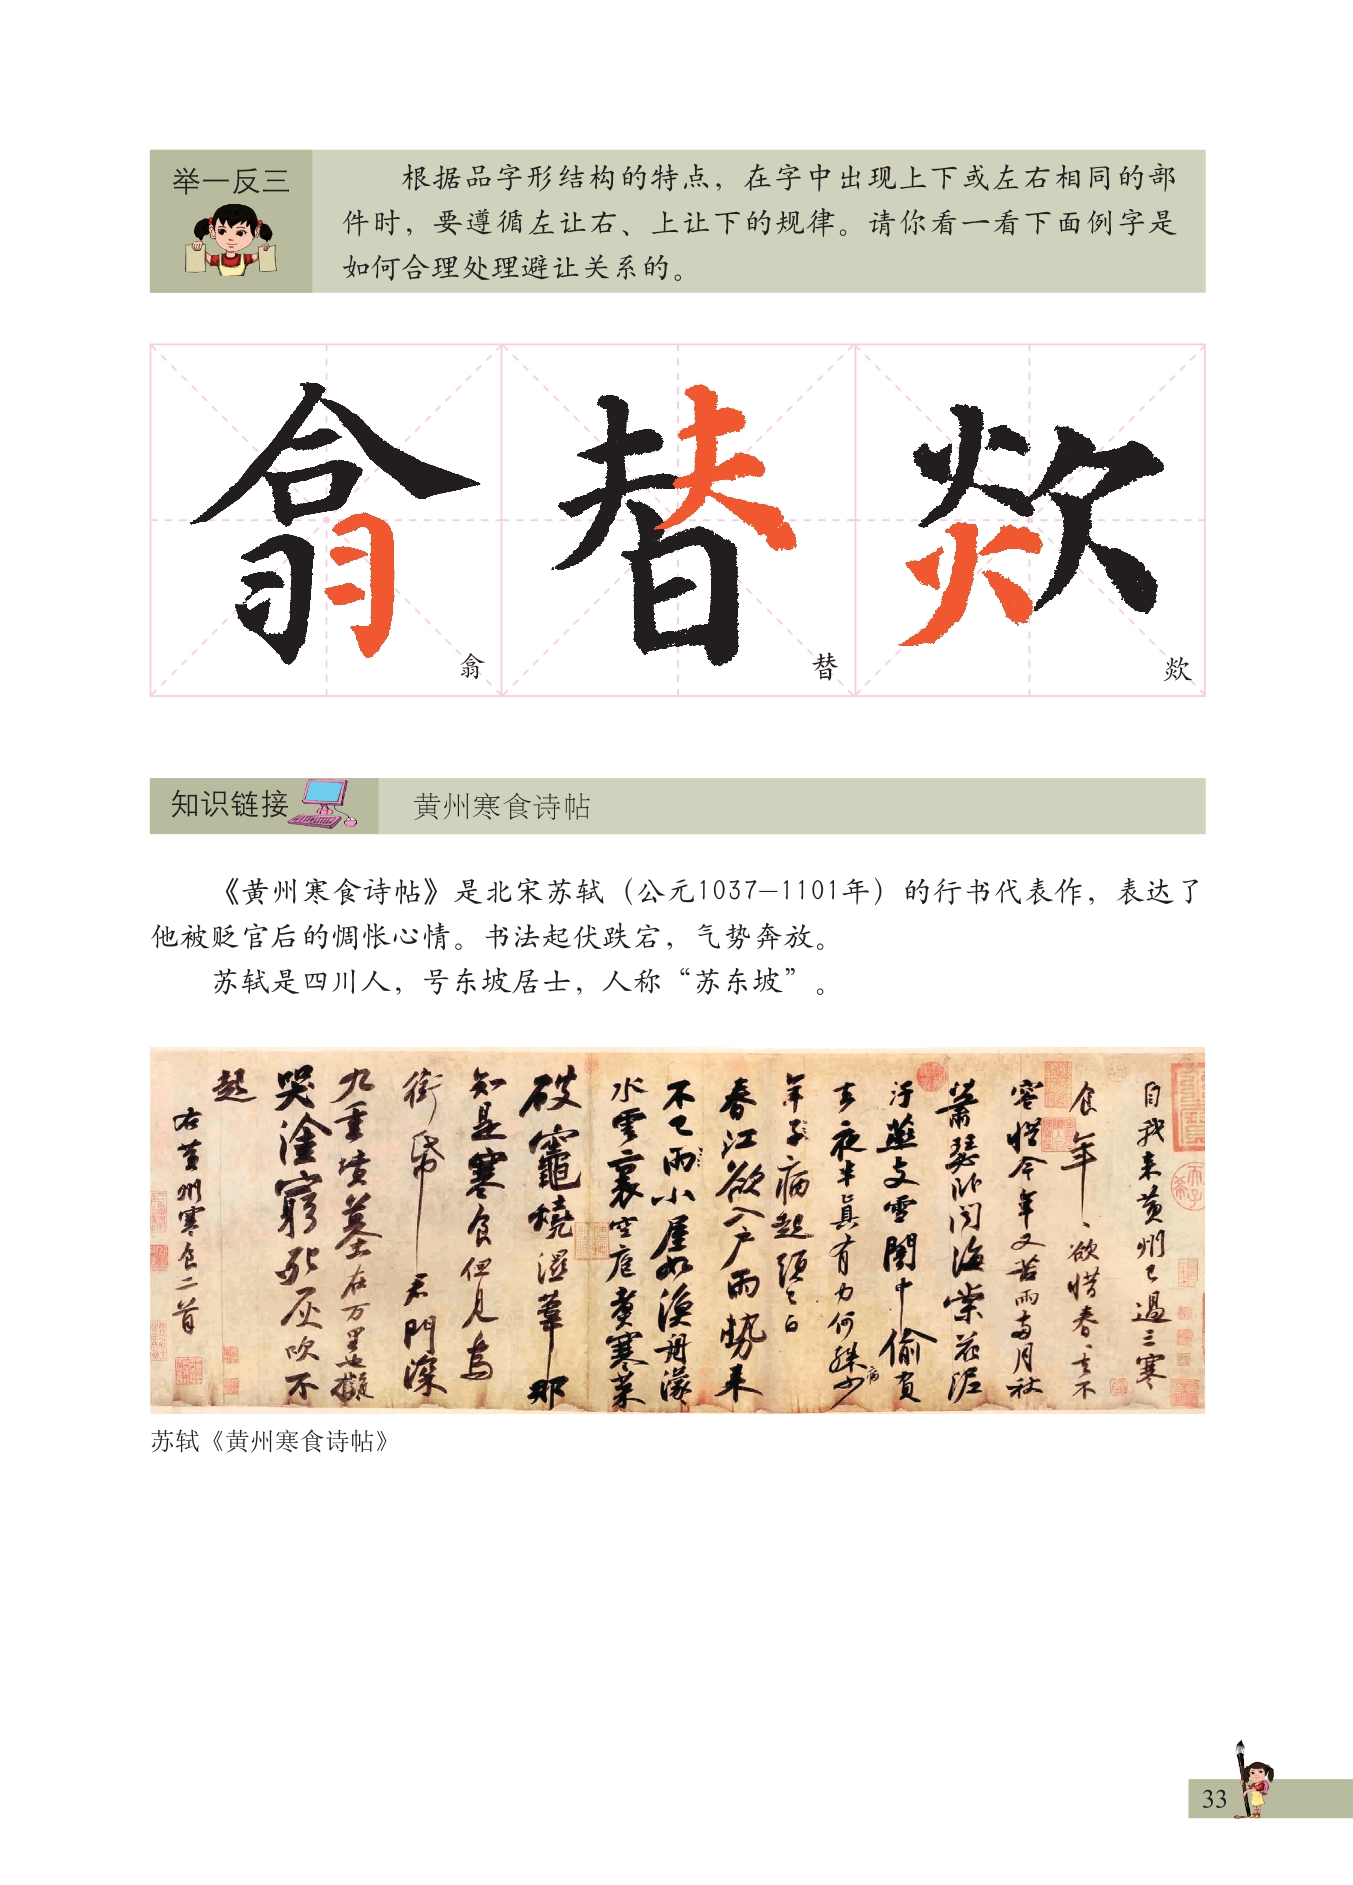 举一反三
根据品字形结构的特点，在字中出现上下或左右相同的部
件时，要遵循左让右、上让下的规律。请你看一看下面例字是
如何合理处理避让关系的。
翕 替 欻
翕 替 欻
知识链接 黄州寒食诗帖
《黄州寒食诗帖》是北宋苏轼（公元1037—1101年）的行书代表作，表达了
他被贬官后的惆怅心情。书法起伏跌宕，气势奔放。
苏轼是四川人，号东坡居士，人称“苏东坡”。
自我来黄州已過三寒
食年、欲惜春、去不
容惜今年又苦雨兩月秋
蕭瑟卧聞海棠花泥
汙燕支雪闇中偷負
去夜半真有力何殊少
年子病起頭已白
春江欲入戶雨勢來
不已雨小屋如漁舟濛
水雲裏空庖煮寒菜
破竈燒濕葦那
知是寒食但見烏
銜帋君門深
九重墳墓在万里也擬
哭塗窮死灰吹不
起
右黄州寒食二首
苏轼《黄州寒食诗帖》
33